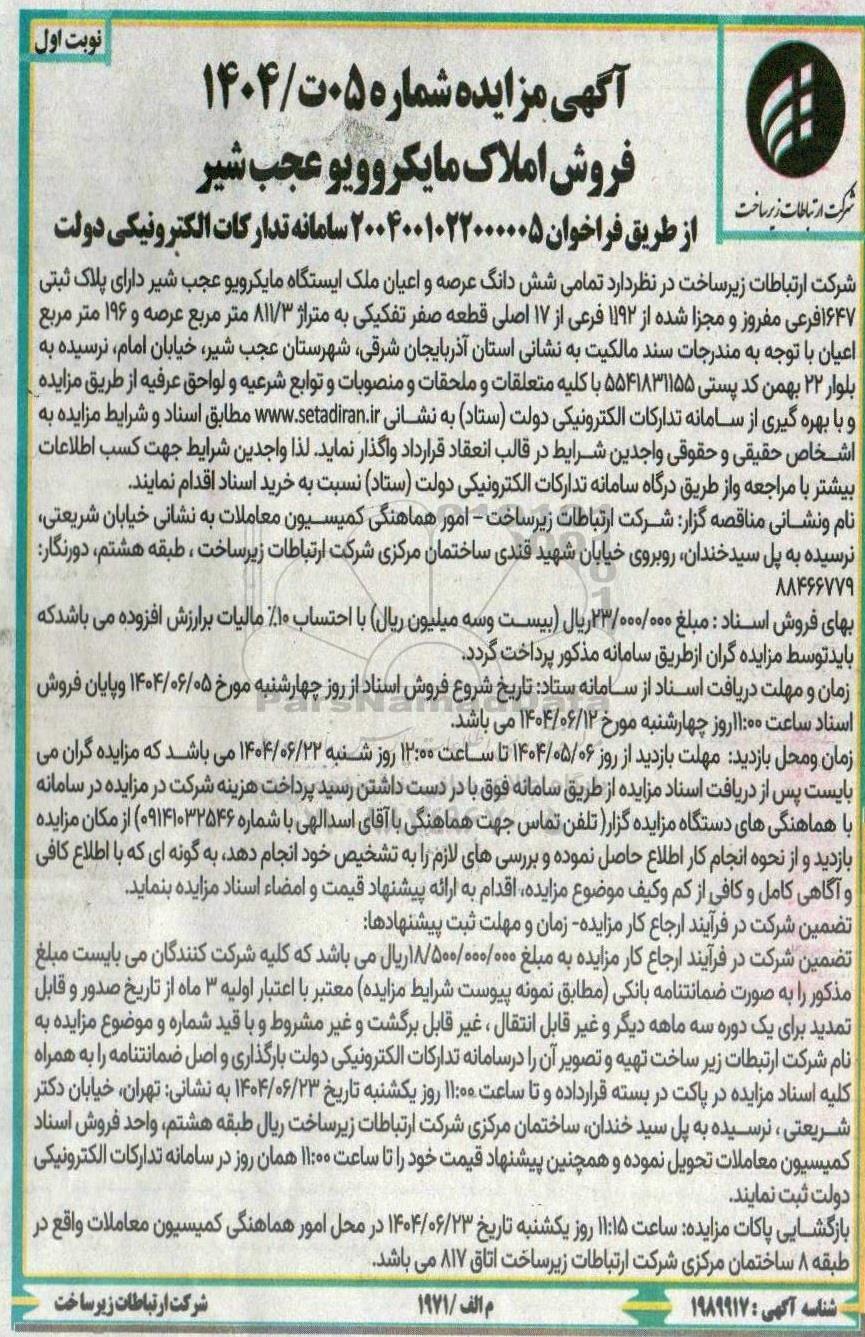 نوبت اول
آگهی مزایده شماره ۰۵ت/۱۴۰۴
فروش املاک مایکروویو عجب شیر
از طریق فراخوان ۲۰۰۴۰۰۱۰۲۲۰۰۰۰۰۵ سامانه تدارکات الکترونیکی دولت
شرکت ارتباطات زیرساخت
شرکت ارتباطات زیرساخت در نظردارد تمامی شش دانگ عرصه و اعیان ملک ایستگاه مایکرویو عجب شیر دارای پلاک ثبتی
۱۶۴۷فرعی مفروز و مجزا شده از ۱۱۹۲ فرعی از ۱۷ اصلی قطعه صفر تفکیکی به متراژ ۸۱۱/۳ متر مربع عرصه و ۱۹۶ متر مربع
اعیان با توجه به مندرجات سند مالکیت به نشانی استان آذربایجان شرقی، شهرستان عجب شیر، خیابان امام، نرسیده به
بلوار ۲۲ بهمن کد پستی ۵۵۴۱۸۳۱۱۵۵ با کلیه متعلقات و ملحقات و منصوبات و توابع شرعیه و لواحق عرفیه از طریق مزایده
و با بهره گیری از سامانه تدارکات الکترونیکی دولت (ستاد) به نشانی www.setadiran.ir مطابق اسناد و شرایط مزایده به
اشخاص حقیقی و حقوقی واجدین شرایط در قالب انعقاد قرارداد واگذار نماید. لذا واجدین شرایط جهت کسب اطلاعات
بیشتر با مراجعه واز طریق درگاه سامانه تدارکات الکترونیکی دولت (ستاد) نسبت به خرید اسناد اقدام نمایند.
نام ونشانی مناقصه گزار: شرکت ارتباطات زیرساخت – امور هماهنگی کمیسیون معاملات به نشانی خیابان شریعتی،
نرسیده به پل سیدخندان، روبروی خیابان شهید قندی ساختمان مرکزی شرکت ارتباطات زیرساخت ، طبقه هشتم، دورنگار:
۸۸۴۶۶۷۷۹
بهای فروش اسناد : مبلغ ۲۳/۰۰۰/۰۰۰ریال (بیست وسه میلیون ریال) با احتساب ۱۰٪ مالیات برارزش افزوده می باشدکه
بایدتوسط مزایده گران ازطریق سامانه مذکور پرداخت گردد.
زمان و مهلت دریافت اسناد از سامانه ستاد: تاریخ شروع فروش اسناد از روز چهارشنبه مورخ ۱۴۰۴/۰۶/۰۵ وپایان فروش
اسناد ساعت ۱۱:۰۰روز چهارشنبه مورخ ۱۴۰۴/۰۶/۱۲ می باشد.
زمان ومحل بازدید: مهلت بازدید از روز ۱۴۰۴/۰۵/۰۶ تا ساعت ۱۲:۰۰ روز شنبه ۱۴۰۴/۰۶/۲۲ می باشد که مزایده گران می
بایست پس از دریافت اسناد مزایده از طریق سامانه فوق با در دست داشتن رسید پرداخت هزینه شرکت در مزایده در سامانه
با هماهنگی های دستگاه مزایده گزار( تلفن تماس جهت هماهنگی با آقای اسدالهی با شماره ۰۹۱۴۱۰۳۲۵۴۶) از مکان مزایده
بازدید و از نحوه انجام کار اطلاع حاصل نموده و بررسی های لازم را به تشخیص خود انجام دهد، به گونه ای که با اطلاع کافی
و آگاهی کامل و کافی از کم وکیف موضوع مزایده، اقدام به ارائه پیشنهاد قیمت و امضاء اسناد مزایده بنماید.
تضمین شرکت در فرآیند ارجاع کار مزایده- زمان و مهلت ثبت پیشنهادها:
تضمین شرکت در فرآیند ارجاع کار مزایده به مبلغ ۱۸/۵۰۰/۰۰۰/۰۰۰ریال می باشد که کلیه شرکت کنندگان می بایست مبلغ
مذکور را به صورت ضمانتنامه بانکی (مطابق نمونه پیوست شرایط مزایده) معتبر با اعتبار اولیه ۳ ماه از تاریخ صدور و قابل
تمدید برای یک دوره سه ماهه دیگر و غیر قابل انتقال ، غیر قابل برگشت و غیر مشروط و با قید شماره و موضوع مزایده به
نام شرکت ارتبطات زیر ساخت تهیه و تصویر آن را درسامانه تدارکات الکترونیکی دولت بارگذاری و اصل ضمانتنامه را به همراه
کلیه اسناد مزایده در پاکت در بسته قرارداده و تا ساعت ۱۱:۰۰ روز یکشنبه تاریخ ۱۴۰۴/۰۶/۲۳ به نشانی: تهران، خیابان دکتر
شریعتی ، نرسیده به پل سید خندان، ساختمان مرکزی شرکت ارتباطات زیرساخت ریال طبقه هشتم، واحد فروش اسناد
کمیسیون معاملات تحویل نموده و همچنین پیشنهاد قیمت خود را تا ساعت ۱۱:۰۰ همان روز در سامانه تدارکات الکترونیکی
دولت ثبت نمایند.
بازگشایی پاکات مزایده: ساعت ۱۱:۱۵ روز یکشنبه تاریخ ۱۴۰۴/۰۶/۲۳ در محل امور هماهنگی کمیسیون معاملات واقع در
طبقه ۸ ساختمان مرکزی شرکت ارتباطات زیرساخت اتاق ۸۱۷ می باشد.
شناسه آگهی : ۱۹۸۹۹۱۷
م الف /۱۹۷۱
شرکت ارتباطات زیرساخت
ParsNamadData